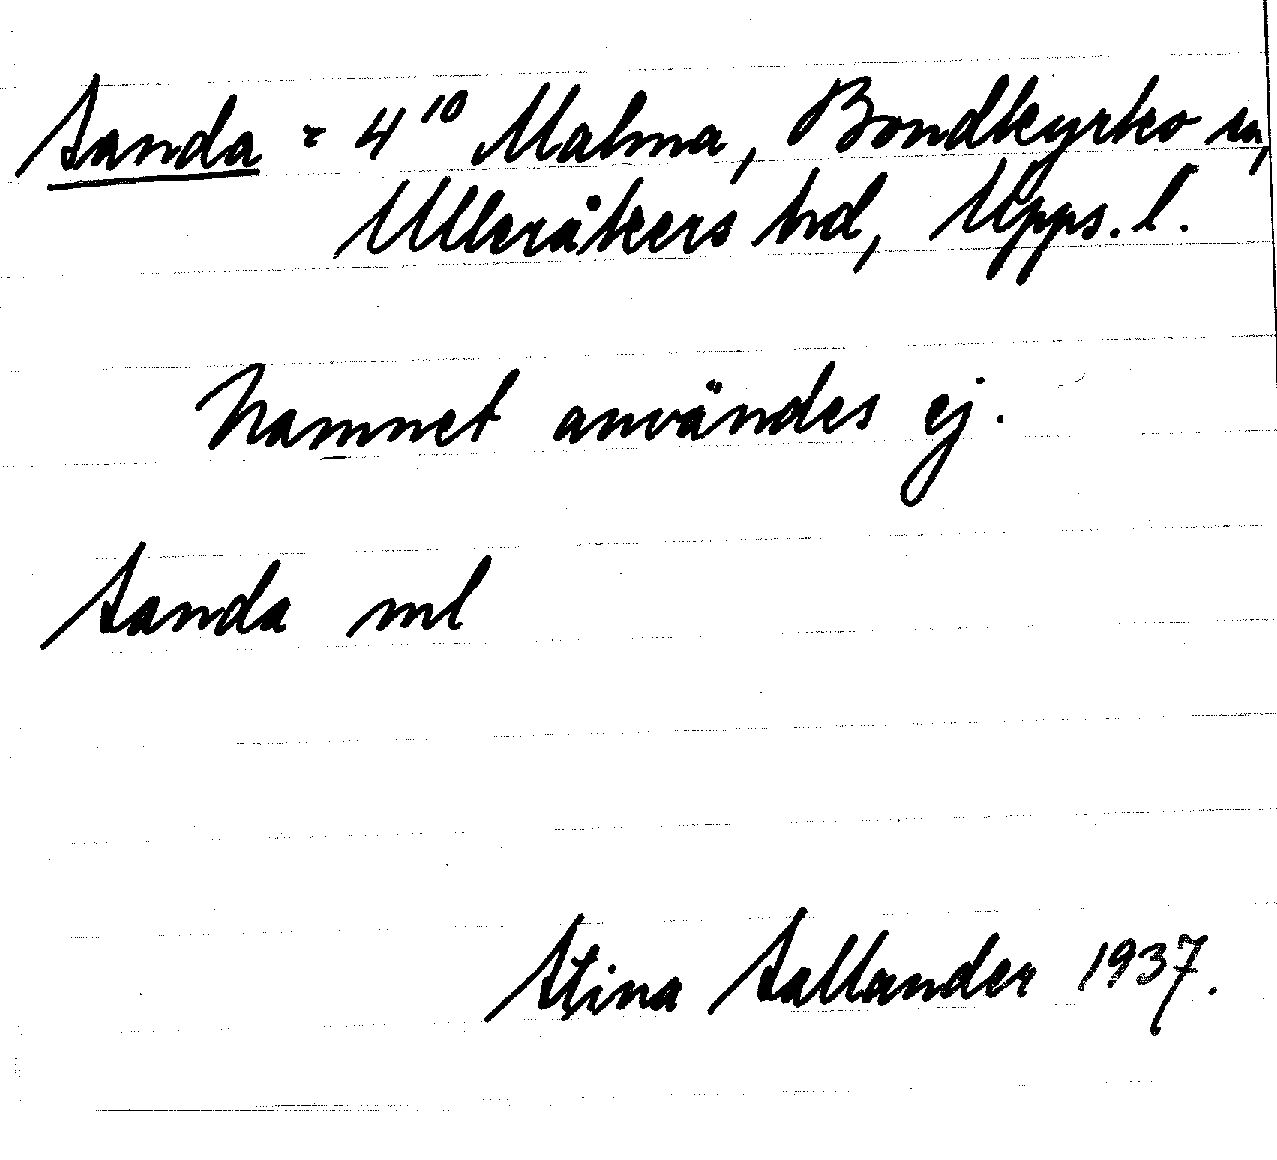 Sanda = 4¹⁰ Malma, Bondkyrko sn,
Ulleråkers hd, Upps. l.
Namnet användes ej.
Sanda ml
Stina Sallander 1937.